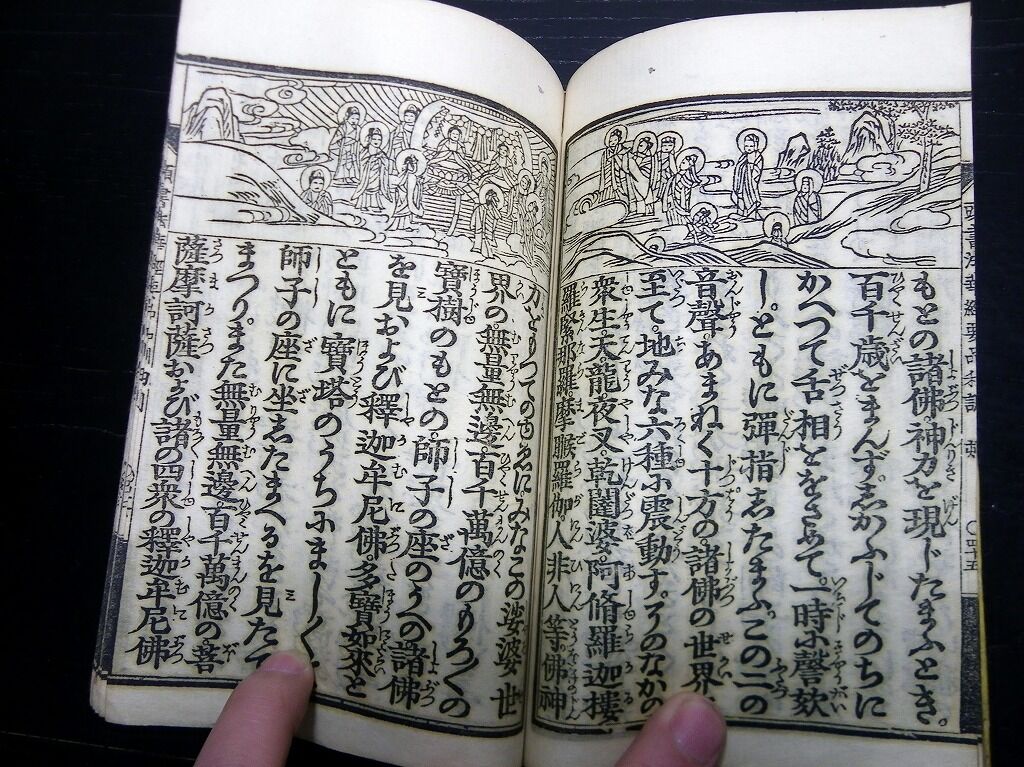 もとの諸佛神力を現じたまふとき。
百千歳をまんず。志かふじてのちに
かへつて舌相ををさめて。一時に謦欬
し。ともに彈指志たまふ。この二の
音聲。あまねく十方の諸佛の世界
至て。地みな六種に震動す。そのなかの
衆生。天龍夜叉。乾闥婆。阿脩羅。迦樓
羅。緊那羅。摩睺羅伽。人非人等。佛神
力をもつてのゆゑに。みなこの娑婆世
界の。無量無邊。百千萬億のもろ〳〵の
寶樹のもとの。師子の座のうへの諸佛
を見。および釋迦牟尼佛。多寶如來と
ともに寶塔のうちにまし〳〵て。
師子の座に坐志たまへるを見たて
まつり。また無量無邊。百千萬億の。菩
薩摩訶薩。および諸の四衆の釋迦牟尼佛
〇四十五